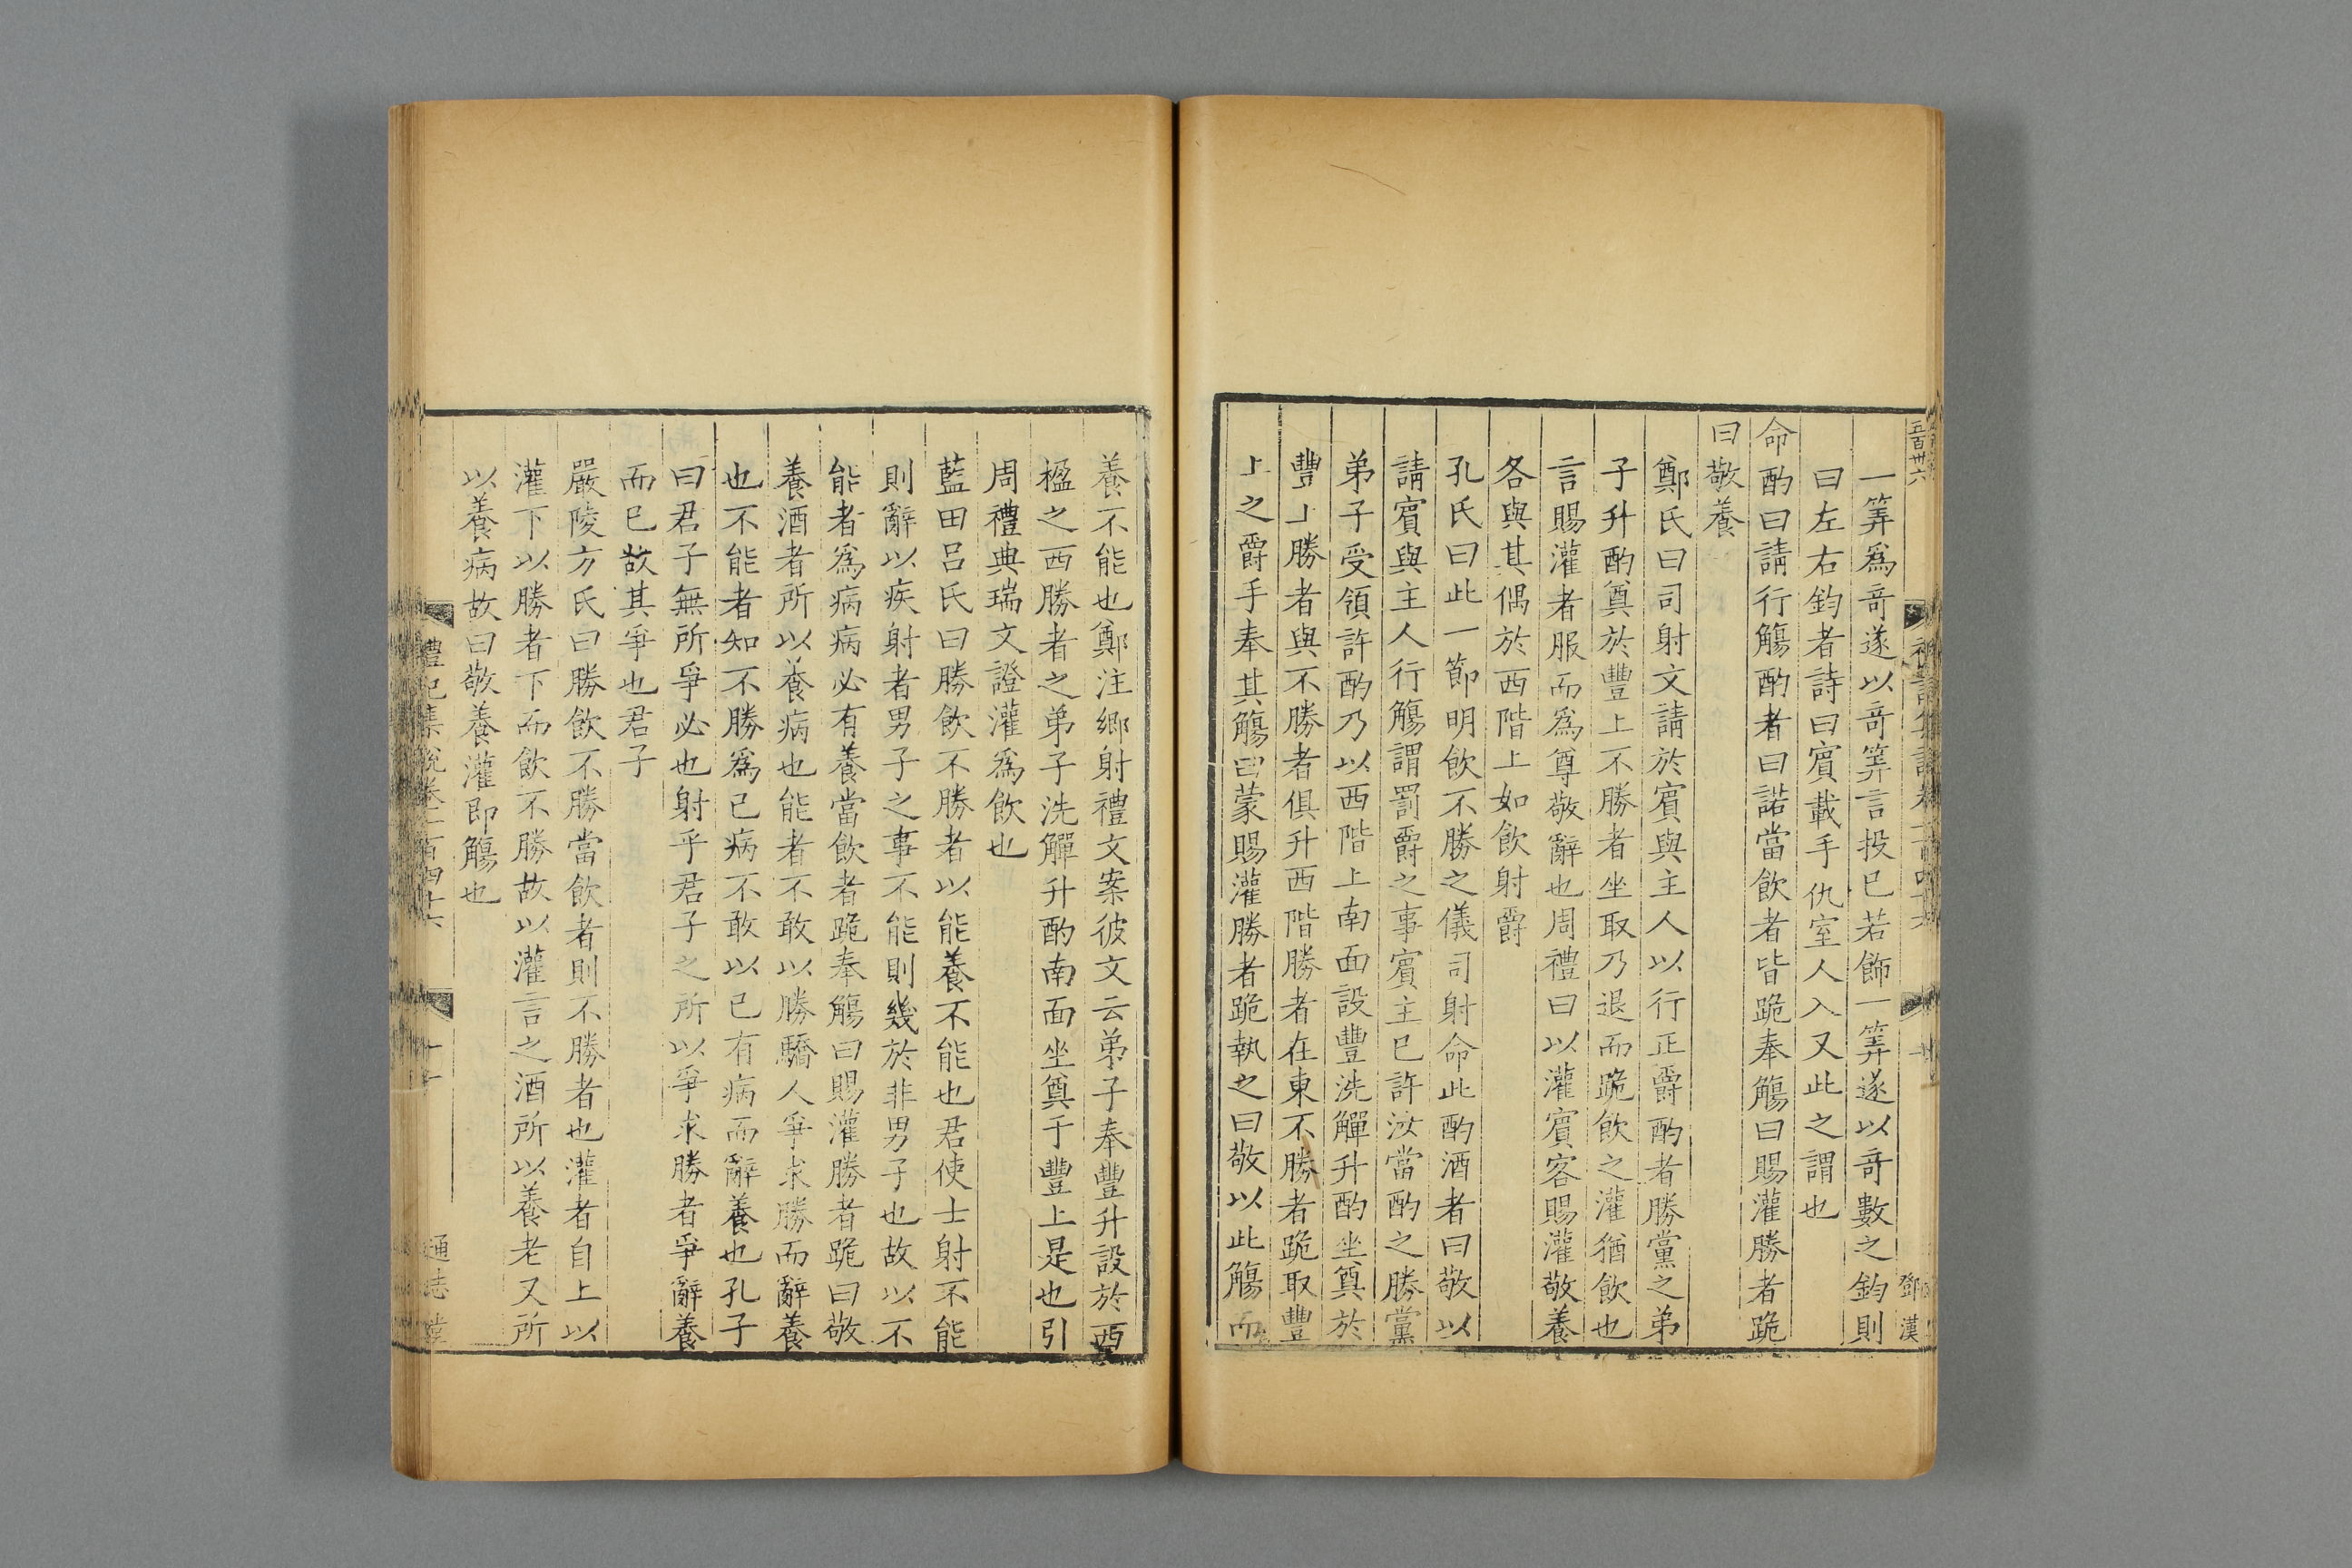 五百卅六
一筭爲竒遂以竒筭言投已若飾一筭遂以竒數之鈞則
曰左右鈞者詩曰賔載手仇室人入又此之謂也
命酌曰請行觴酌者曰諾當飲者皆跪奉觴曰賜灌勝者跪
曰敬養
鄭氏曰司射文請於賔與主人以行正爵酌者勝黨之弟
子升酌奠於豐上不勝者坐取乃退而跪飲之灌猶飲也
言賜灌者服而爲尊敬辭也周禮曰以灌賔客賜灌敬養
各與其偶於西階上如飲射爵
孔氏曰此一節明飲不勝之儀司射命此酌酒者曰敬以
請賔與主人行觴謂罰爵之事賔主已許汝當酌之勝黨
弟子受領許酌乃以西階上南面設豐洗觶升酌坐奠於
豐上勝者與不勝者俱升西階勝者在東不勝者跪取豐
上之爵手奉其觴曰蒙賜灌勝者跪執之曰敬以此觴而
鄧漢
養不能也鄭注鄉射禮文案彼文云弟子奉豐升設於西
楹之西勝者之弟子洗觶升酌南面坐奠于豐上是也引
周禮典瑞文證灌爲飲也
藍田呂氏曰勝飲不勝者以能養不能也君使士射不能
則辭以疾射者男子之事不能則幾於非男子也故以不
能者爲病病必有養當飲者跪奉觴曰賜灌勝者跪曰敬
養酒者所以養病也能者不敢以勝驕人爭求勝而辭養
也不能者知不勝爲已病不敢以已有病而辭養也孔子
曰君子無所爭必也射乎君子之所以爭求勝者爭辭養
而已故其爭也君子
嚴陵方氏曰勝飲不勝當飲者則不勝者也灌者自上以
灌下以勝者下而飲不勝故以灌言之酒所以養老又所
以養病故曰敬養灌即觴也
禮記集說卷一百四十六
通志堂